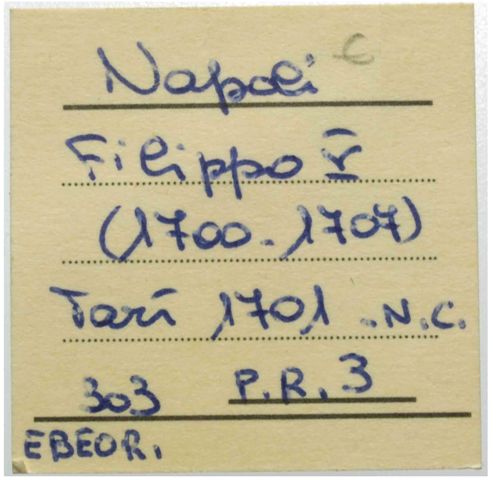 Napoli €
Filippo V
(1700-1707)
Tarì 1701 .N.C.
303 P.R. 3
EBEOR.